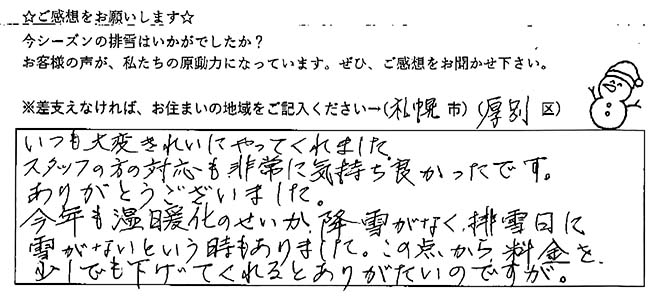 ☆ご感想をお願いします☆
今シーズンの排雪はいかがでしたか？
お客様の声が、私たちの原動力になっています。ぜひ、ご感想をお聞かせ下さい。
※差支えなければ、お住まいの地域をご記入ください→(札幌 市) (厚別 区)
いつも大変きれいにやってくれました。
スタッフの方の対応も非常に気持ち良かったです。
ありがとうございました。
今年も温暖化のせいか、降雪がなく、排雪日に
雪がないという時もありました。この点から料金を、
少しでも下げてくれるとありがたいのですが。